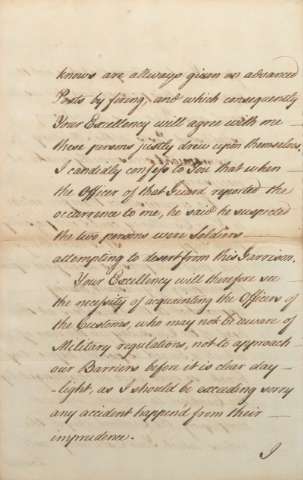 knows are allways given as advanced
Posts by firing, and which consequently
Your Excellency will agree with me
these persons justly drew upon themselves,
I candidly confess to You that when
the Officer of that Guard reported the
occurrence to me, he said he suspected
the two persons were Soldiers
attempting to desert from this Garrison.
Your Excellency will therefore see
the necessity of acquainting the Officers of
the Customs, who may not be aware of
Military regulations, not to approach
our Barriers before it is clear day-
light, as I should be exceeding sorry
any accident happend from their
imprudence.
I